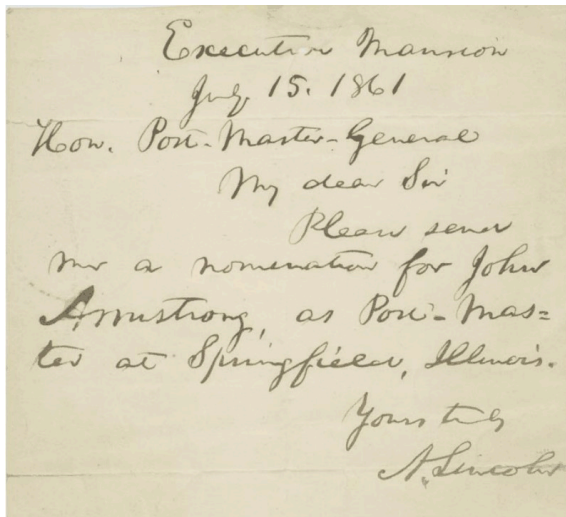 Executive Mansion
July 15. 1861
Hon. Post-Master-General
My dear Sir
Please send
me a nomination for John
Armstrong, as Post-Mas=
ter at Springfield, Illinois.
Yours truly
A. Lincoln